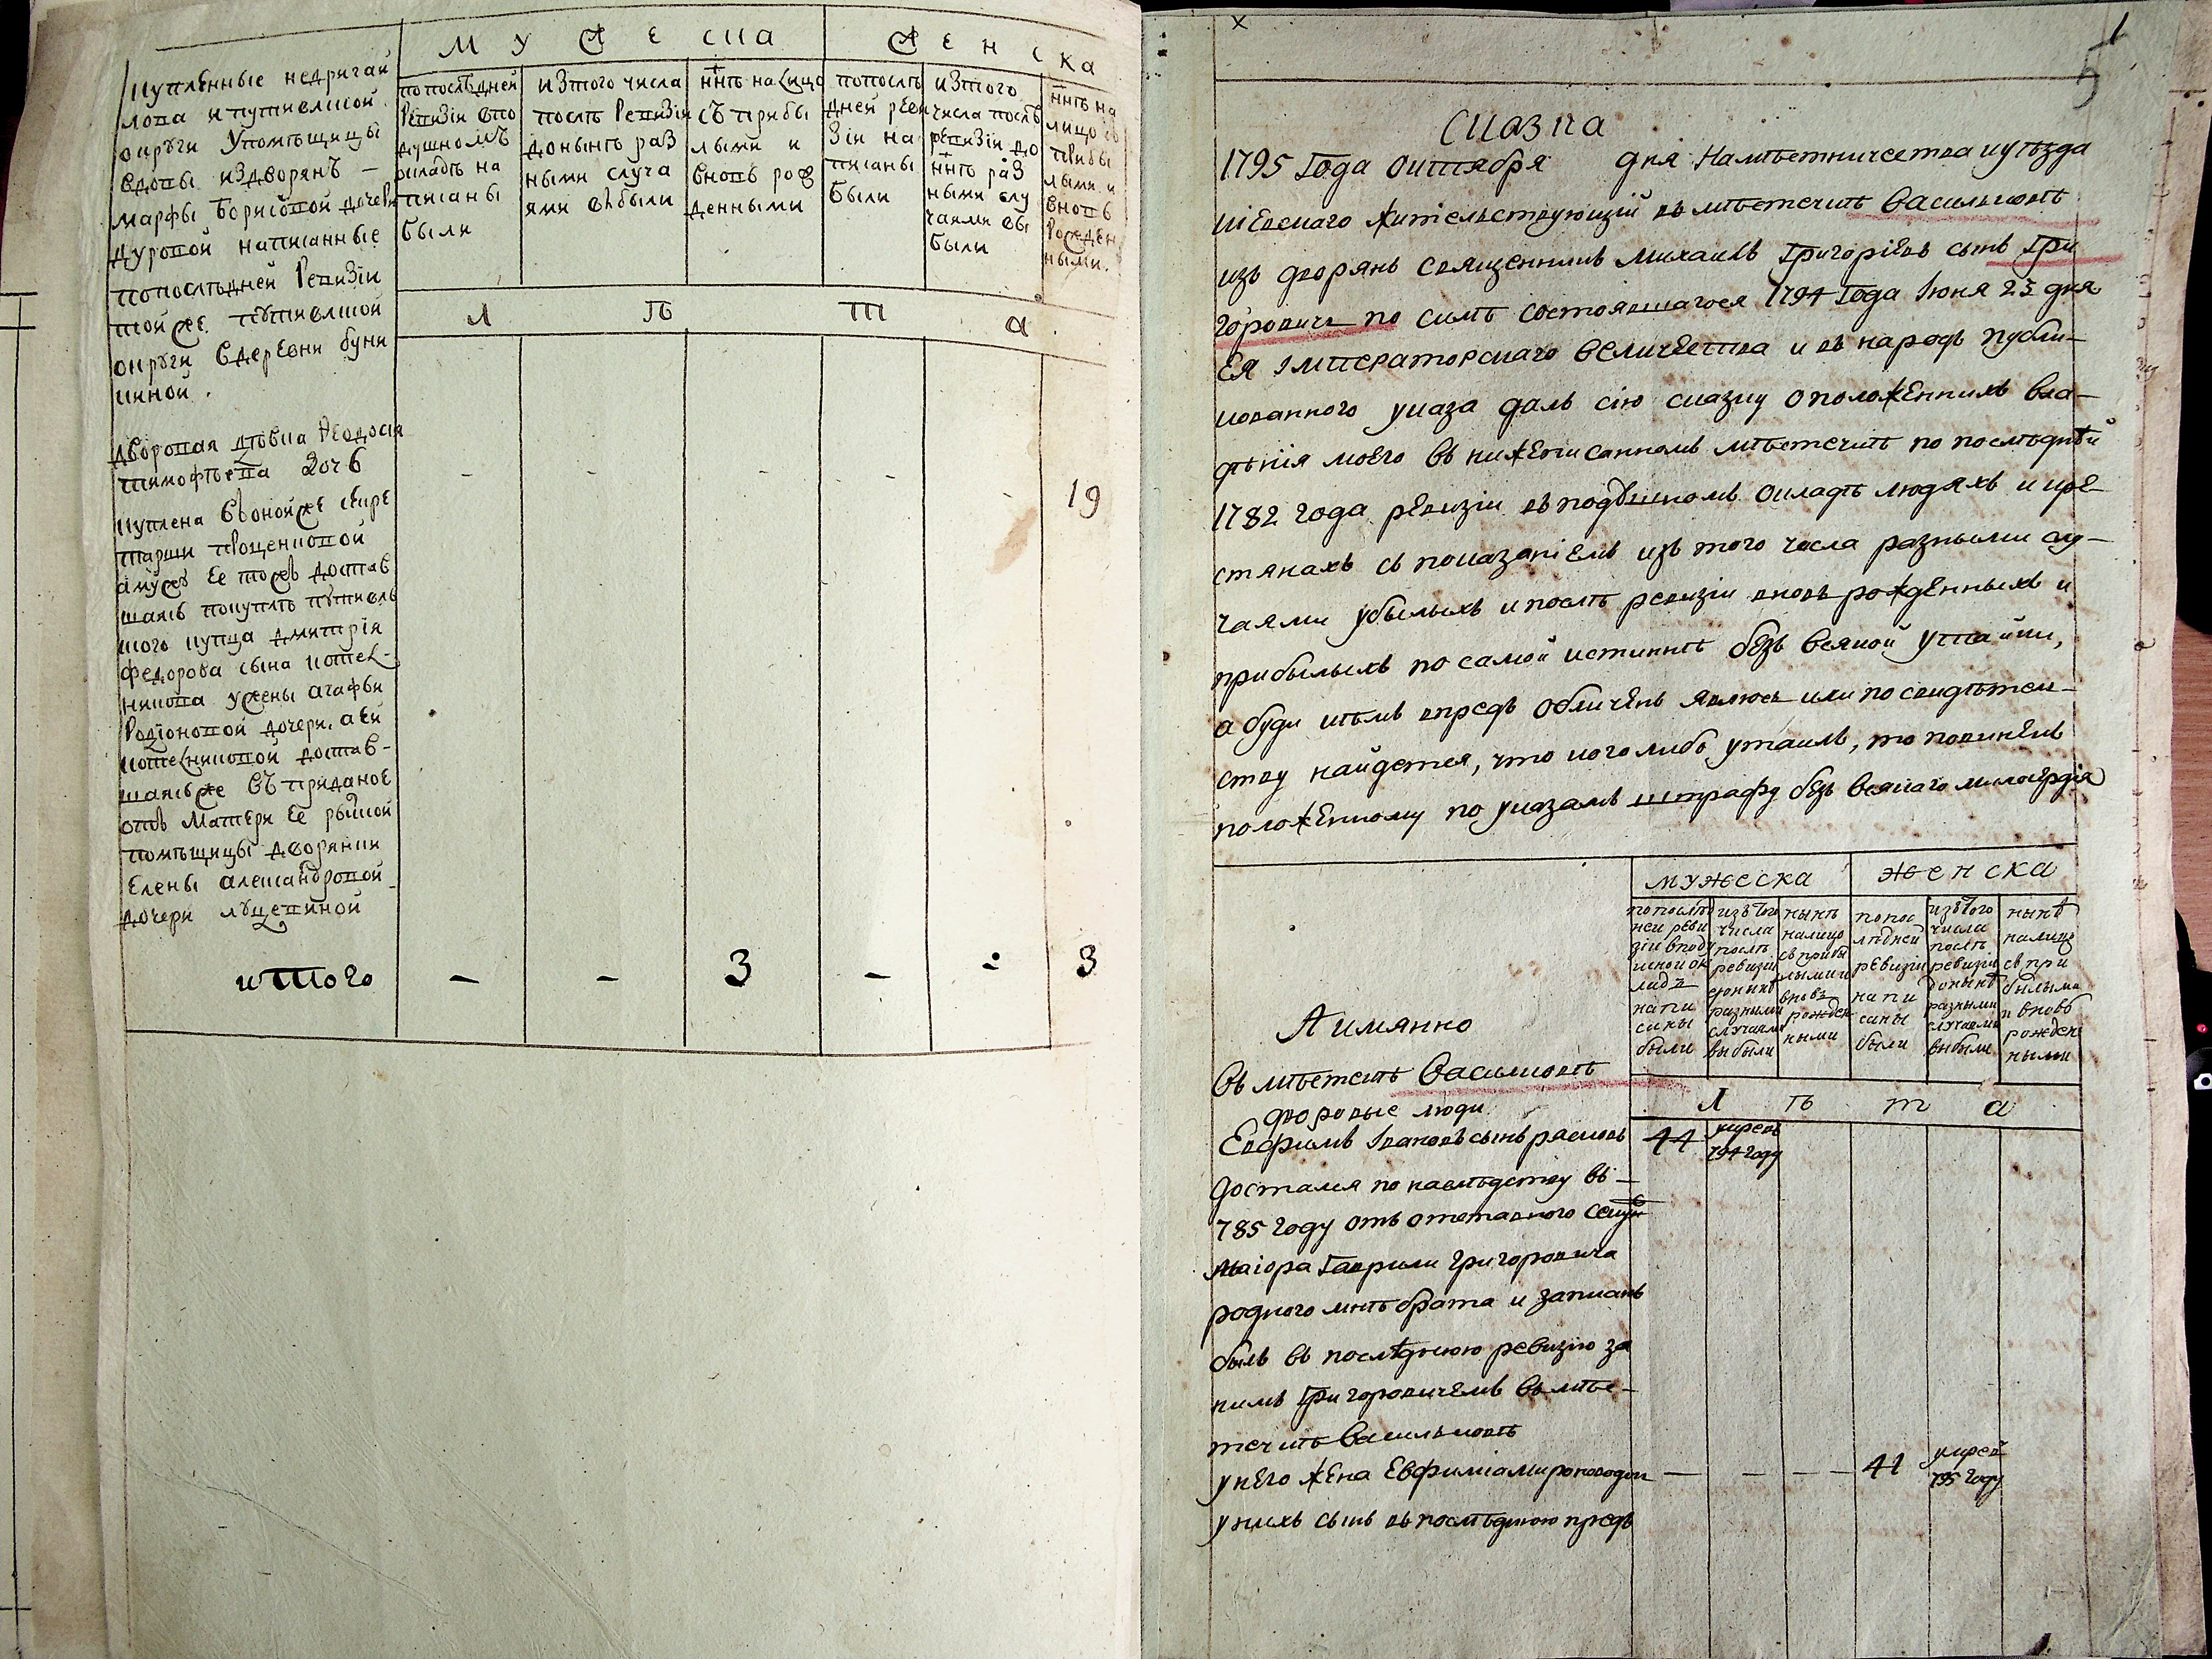 мужеска
женска
купленные недригай
лова и путивлской
округи Упомѣщицы
вдовы издворянъ –
марфы Борисовой дочери
дуровой написанные
попослѣдней Ревизіи
той же путивлской
округи вдеревни буни
киной .
попослѣдней
Ревизіи впо
душномъ
окладѣ на
писаны
были
изтого числа
послѣ Ревизіи
донынѣ раз
ными случа
ями выбыли
ннѣ налицо
съ прибы
лыми и
вновь рож
денными
попослѣ
дней реви
зіи на
писаны
были
изтого
числа послѣ
ревизіи до
ннѣ раз
ными слу
чаями вы
были
ннѣ на
лицо съ
прибы
лыми и
вновь
рожден
ными.
л ѣ т а
дворовая дѣвка Ѳеодосія
тимофѣева дочь
- - - - - 19
куплена воной же
а мужу ее тожъ достав
шаясь покупкѣ путивль
ского купца дмитрія
федорова сына котел-
никова ужены агафьи
Родіоновой дочери, а ей
котелниковой достав-
шаясь же въ приданое
отъ матери ее рылской
помѣщицы дворянки
Елены александровой
дочери лущениной
итого - - 3 - - 3
х
1
5
Сказка
1795 Года октября дня Намѣстничества куѣзда
кіевскаго жительствующій въ мѣстечкѣ Василковѣ
изъ дворянъ священникъ Михаилъ Григоріевъ сынъ Гри
горовичь по силѣ состоявшагося 1794 Года Іюня 23 дня
Ея Імператорскаго величества и въ народъ публи–
кованного указа далъ сію сказку о положенныхъ вла–
дѣнія моего въ нижеписанномъ мѣстечкѣ по послѣдней
1782 года ревизіи въ подушномъ окладѣ людяхъ и кре–
стянахъ съ показаніемъ изъ того числа разными слу–
чаями убылыхъ и послѣ ревизіи вновь рожденныхъ и
прибылыхъ по самой истиннѣ безъ всякой утайки,
а буди кѣмъ впредь обличенъ явлюсь или по свидѣтел–
ству найдется, что кого либо утаилъ, то повиненъ
положенному по указамъ штрафу безъ всякаго милосердія
мужеска
женска
попослѣд
ней реви
зіи вподу
шной ок
ладъ
напи
саны
были
изъ того
числа
послѣ
ревизіи
донынѣ
разными
случаями
выбыли
нынѣ
налицо
съ прибы
лыми и
вновь
рожден
ными
попос
лѣдней
ревизіи
напи
саны
были
изъ того
числа
послѣ
ревизіи
донынѣ
разными
случаями
выбыли
нынѣ
налицо
съ при
былыми
и вновь
рожден
ными
А имянно
Въ мѣстечкѣ Василковѣ
дворовые люди
л ѣ т а
Евфимъ Івановъ сынъ расковъ 44 умре въ
794 году
достался по наслѣдству въ –
785 году отъ отставного секунд
маіора Гаврили Григоровича
родного мнѣ брата и записанъ
былъ въ послѣднюю ревизію за
нимъ Григоровичемъ въ мѣс–
течкѣ Василковѣ
у него жена Евфиміа — — — — 41 умре въ
795 году
у нихъ сынъ въ послѣднюю предъ